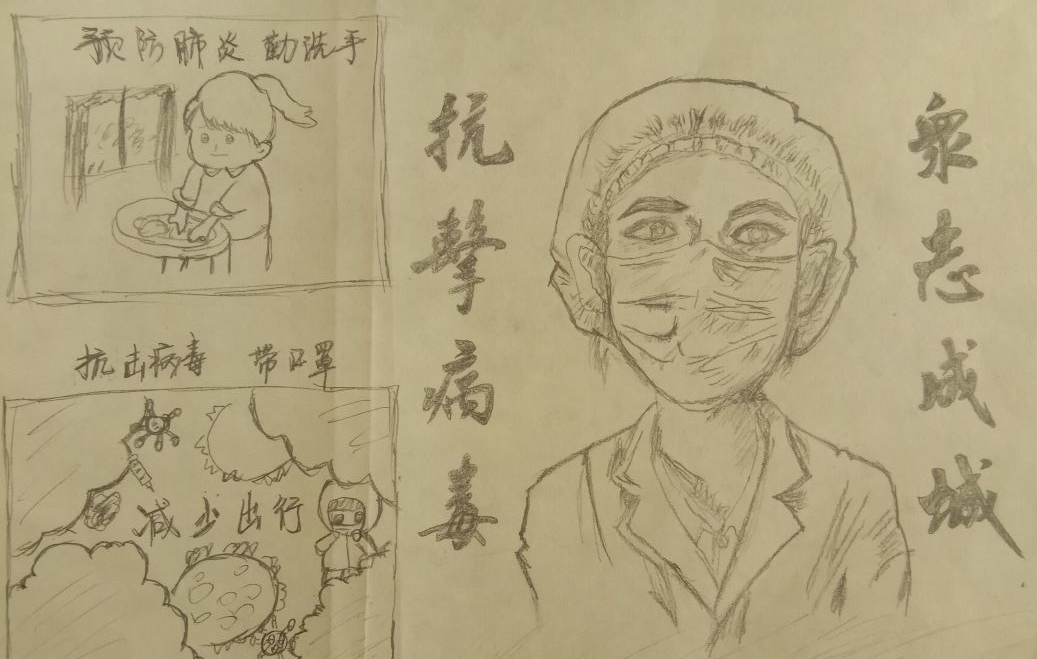 预防肺炎 勤洗手
抗击病毒 带口罩
减少出行
抗擊病毒
衆志成城